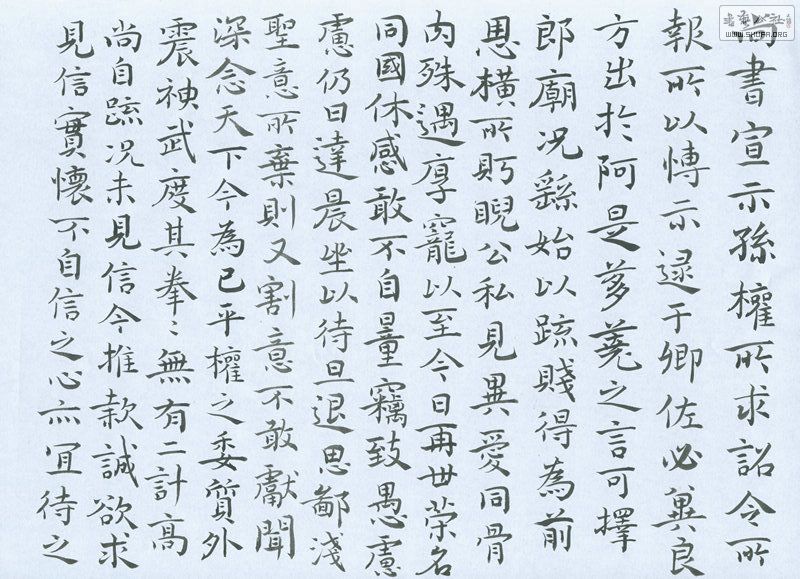 尚書宣示孫權所求詔令所
報所以博示逯于卿佐必冀良
方出於阿是芻蕘之言可擇
郎廟况繇始以疏賤得為前
恩橫所眄睨公私見異愛同骨
肉殊遇厚寵以至今日再世榮名
同國休感敢不自量竊致愚慮
慮仍日達晨坐以待旦退思鄙淺
聖意所棄則又割意不敢獻聞
深念天下今為已平權之委質外
震神武度其拳〻無有二計高
尚自疏况未見信今推款誠欲求
見信實懷不自信之心亦宜待之
WWW.SHUFA.ORG